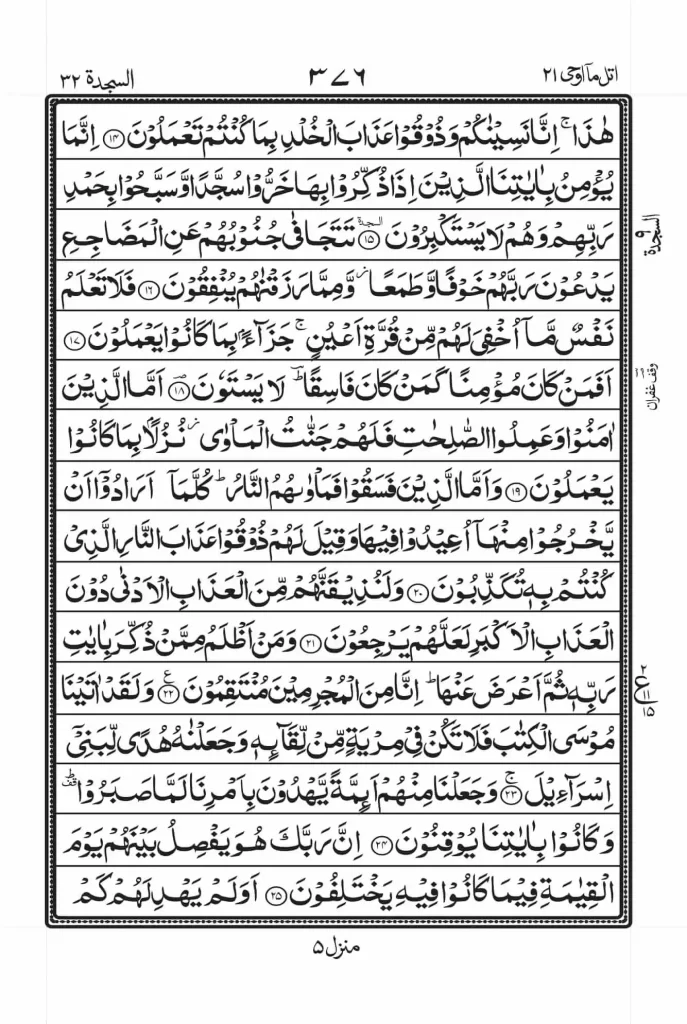 اتل مآ اوحی ۲۱
۳۷۶
السجدة ۳۲
هٰذَا ۚ اِنَّا نَسِیْنٰكُمْ وَذُوْقُوْا عَذَابَ الْخُلْدِ بِمَا كُنْتُمْ تَعْمَلُوْنَ ﴿۱۴﴾ اِنَّمَا
یُؤْمِنُ بِاٰیٰتِنَا الَّذِیْنَ اِذَا ذُكِّرُوْا بِهَا خَرُّوْا سُجَّدًا وَّسَبَّحُوْا بِحَمْدِ
رَبِّهِمْ وَهُمْ لَا یَسْتَكْبِرُوْنَ ﴿۱۵﴾ تَتَجَافٰی جُنُوْبُهُمْ عَنِ الْمَضَاجِعِ
السجدة ۹
یَدْعُوْنَ رَبَّهُمْ خَوْفًا وَّطَمَعًا ؗ وَّمِمَّا رَزَقْنٰهُمْ یُنْفِقُوْنَ ﴿۱۶﴾ فَلَا تَعْلَمُ
نَفْسٌ مَّاۤ اُخْفِیَ لَهُمْ مِّنْ قُرَّةِ اَعْیُنٍ ۚ جَزَآءًۢ بِمَا كَانُوْا یَعْمَلُوْنَ ﴿۱۷﴾
اَفَمَنْ كَانَ مُؤْمِنًا كَمَنْ كَانَ فَاسِقًا ؔؕ لَا یَسْتَوٗنَ ﴿۱۸﴾ اَمَّا الَّذِیْنَ
وقف غفران
اٰمَنُوْا وَعَمِلُوا الصّٰلِحٰتِ فَلَهُمْ جَنّٰتُ الْمَاْوٰی ؗ نُزُلًۢا بِمَا كَانُوْا
یَعْمَلُوْنَ ﴿۱۹﴾ وَاَمَّا الَّذِیْنَ فَسَقُوْا فَمَاْوٰىهُمُ النَّارُ ؕ كُلَّمَاۤ اَرَادُوْۤا اَنْ
یَّخْرُجُوْا مِنْهَاۤ اُعِیْدُوْا فِیْهَا وَقِیْلَ لَهُمْ ذُوْقُوْا عَذَابَ النَّارِ الَّذِیْ
كُنْتُمْ بِهٖ تُكَذِّبُوْنَ ﴿۲۰﴾ وَلَنُذِیْقَنَّهُمْ مِّنَ الْعَذَابِ الْاَدْنٰی دُوْنَ
الْعَذَابِ الْاَكْبَرِ لَعَلَّهُمْ یَرْجِعُوْنَ ﴿۲۱﴾ وَمَنْ اَظْلَمُ مِمَّنْ ذُكِّرَ بِاٰیٰتِ
رَبِّهٖ ثُمَّ اَعْرَضَ عَنْهَا ؕ اِنَّا مِنَ الْمُجْرِمِیْنَ مُنْتَقِمُوْنَ ﴿۲۲﴾ وَلَقَدْ اٰتَیْنَا
۲ ع ۱۱ ۱۵
مُوْسَی الْكِتٰبَ فَلَا تَكُنْ فِیْ مِرْیَةٍ مِّنْ لِّقَآىِٕهٖ وَجَعَلْنٰهُ هُدًی لِّبَنِیْۤ
اِسْرَآءِیْلَ ۚ﴿۲۳﴾ وَجَعَلْنَا مِنْهُمْ اَىِٕمَّةً یَّهْدُوْنَ بِاَمْرِنَا لَمَّا صَبَرُوْا ؕ قف
وَكَانُوْا بِاٰیٰتِنَا یُوْقِنُوْنَ ﴿۲۴﴾ اِنَّ رَبَّكَ هُوَ یَفْصِلُ بَیْنَهُمْ یَوْمَ
الْقِیٰمَةِ فِیْمَا كَانُوْا فِیْهِ یَخْتَلِفُوْنَ ﴿۲۵﴾ اَوَلَمْ یَهْدِ لَهُمْ كَمْ
منزل ۵